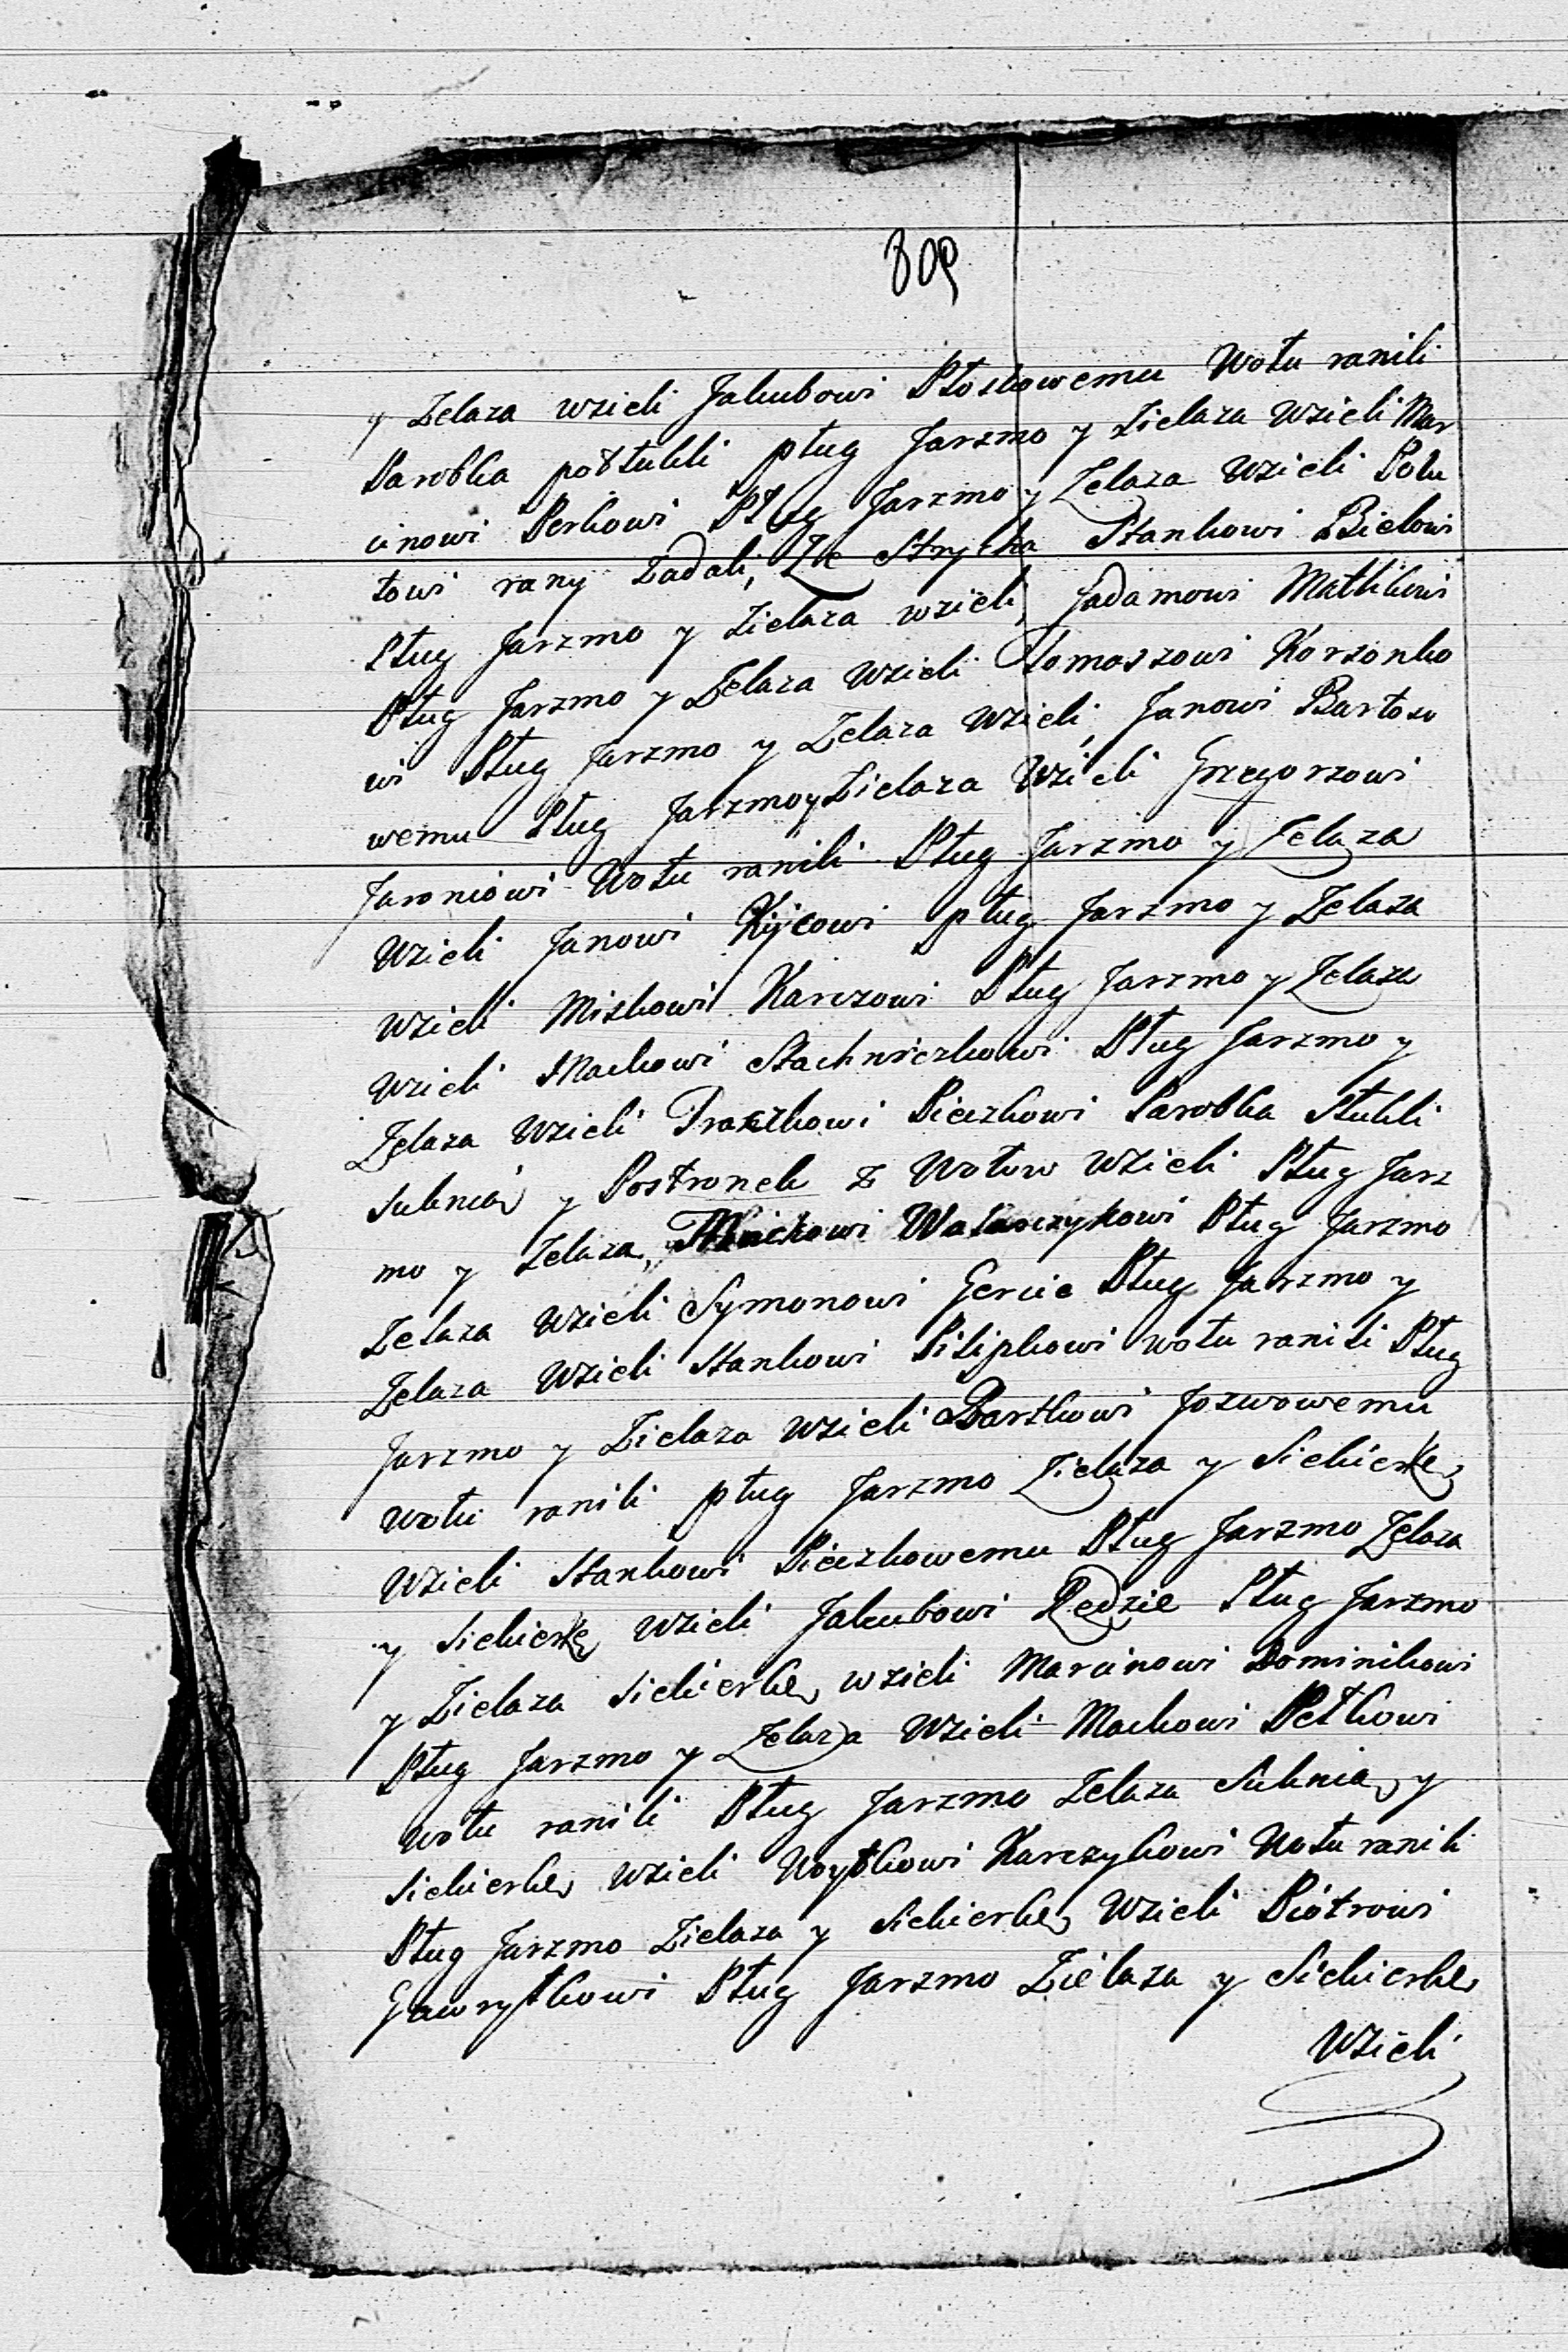 809
y Zelaza wzieli Jakubowi Płoskowemu Wołu ranili
Parobka potłukli pług Jarzmo y Zielaza Wzieli Mar
cinowi Perkowi Pług Jarzmo y Zelaza Wzieli Polu
towi rany Zadali, Ze Strycha Stankowi Bielowi
Pług Jarzmo y Zielaza wzieli, Jadamowi Mathkowi
Pług Jarzmo y Zelaza Wzieli Tomaszowi Korzonko
wi Pług Jarzmo y Zelaza Wzieli, Janowi Bartoso
wemu Pług Jarzmo y Zielaza Wzieli Grzegorzowi
Jaroniowi Wołu ranili Pług Jarzmo y Zelaza
Wzieli Janowi Kijcowi pług Jarzmo y Zelaza
Wzieli Miskowi Karczowi Pług Jarzmo y Zelaza
Wzieli Mackowi Stachniczkowi Pług Jarzmo y
Zelaza Wzieli Praczkowi Pieczkowi Parobka Stukli
Suknią y Postronek z Wołow Wzieli Pług Jarz
mo y Zelaza, Walaszczykowi Pług Jarzmo
Zelaza Wzieli Symonowi Gercie Pług Jarzmo y
Zelaza Wzieli Stankowi Pilipkowi wołu ranili Pług
Jarzmo y Zielaza Wzieli Bartkowi Jozwowemu
wołu ranili pług Jarzmo Zielaza y Siekierkę
Wzieli Stankowi Pieczkowemu Pług Jarzmo Zelaza
y Siekierkę Wzieli Jakubowi Rędzie Pług Jarzmo
y Zielaza Siekierkę wzieli Marcinowi Dominikowi
Pług Jarzmo y Zelaza Wzieli Mackowi Petkowi
wołu ranili Pług Jarzmo Zelaza Suknią y
Siekierkę Wzieli Woytkowi Karczykowi Wołu ranili
Pług Jarzmo Zielaza y Siekierkę Wzieli Piotrowi
Gawrytkowi Pług Jarzmo Zielaza y Siekierkę
Wzieli